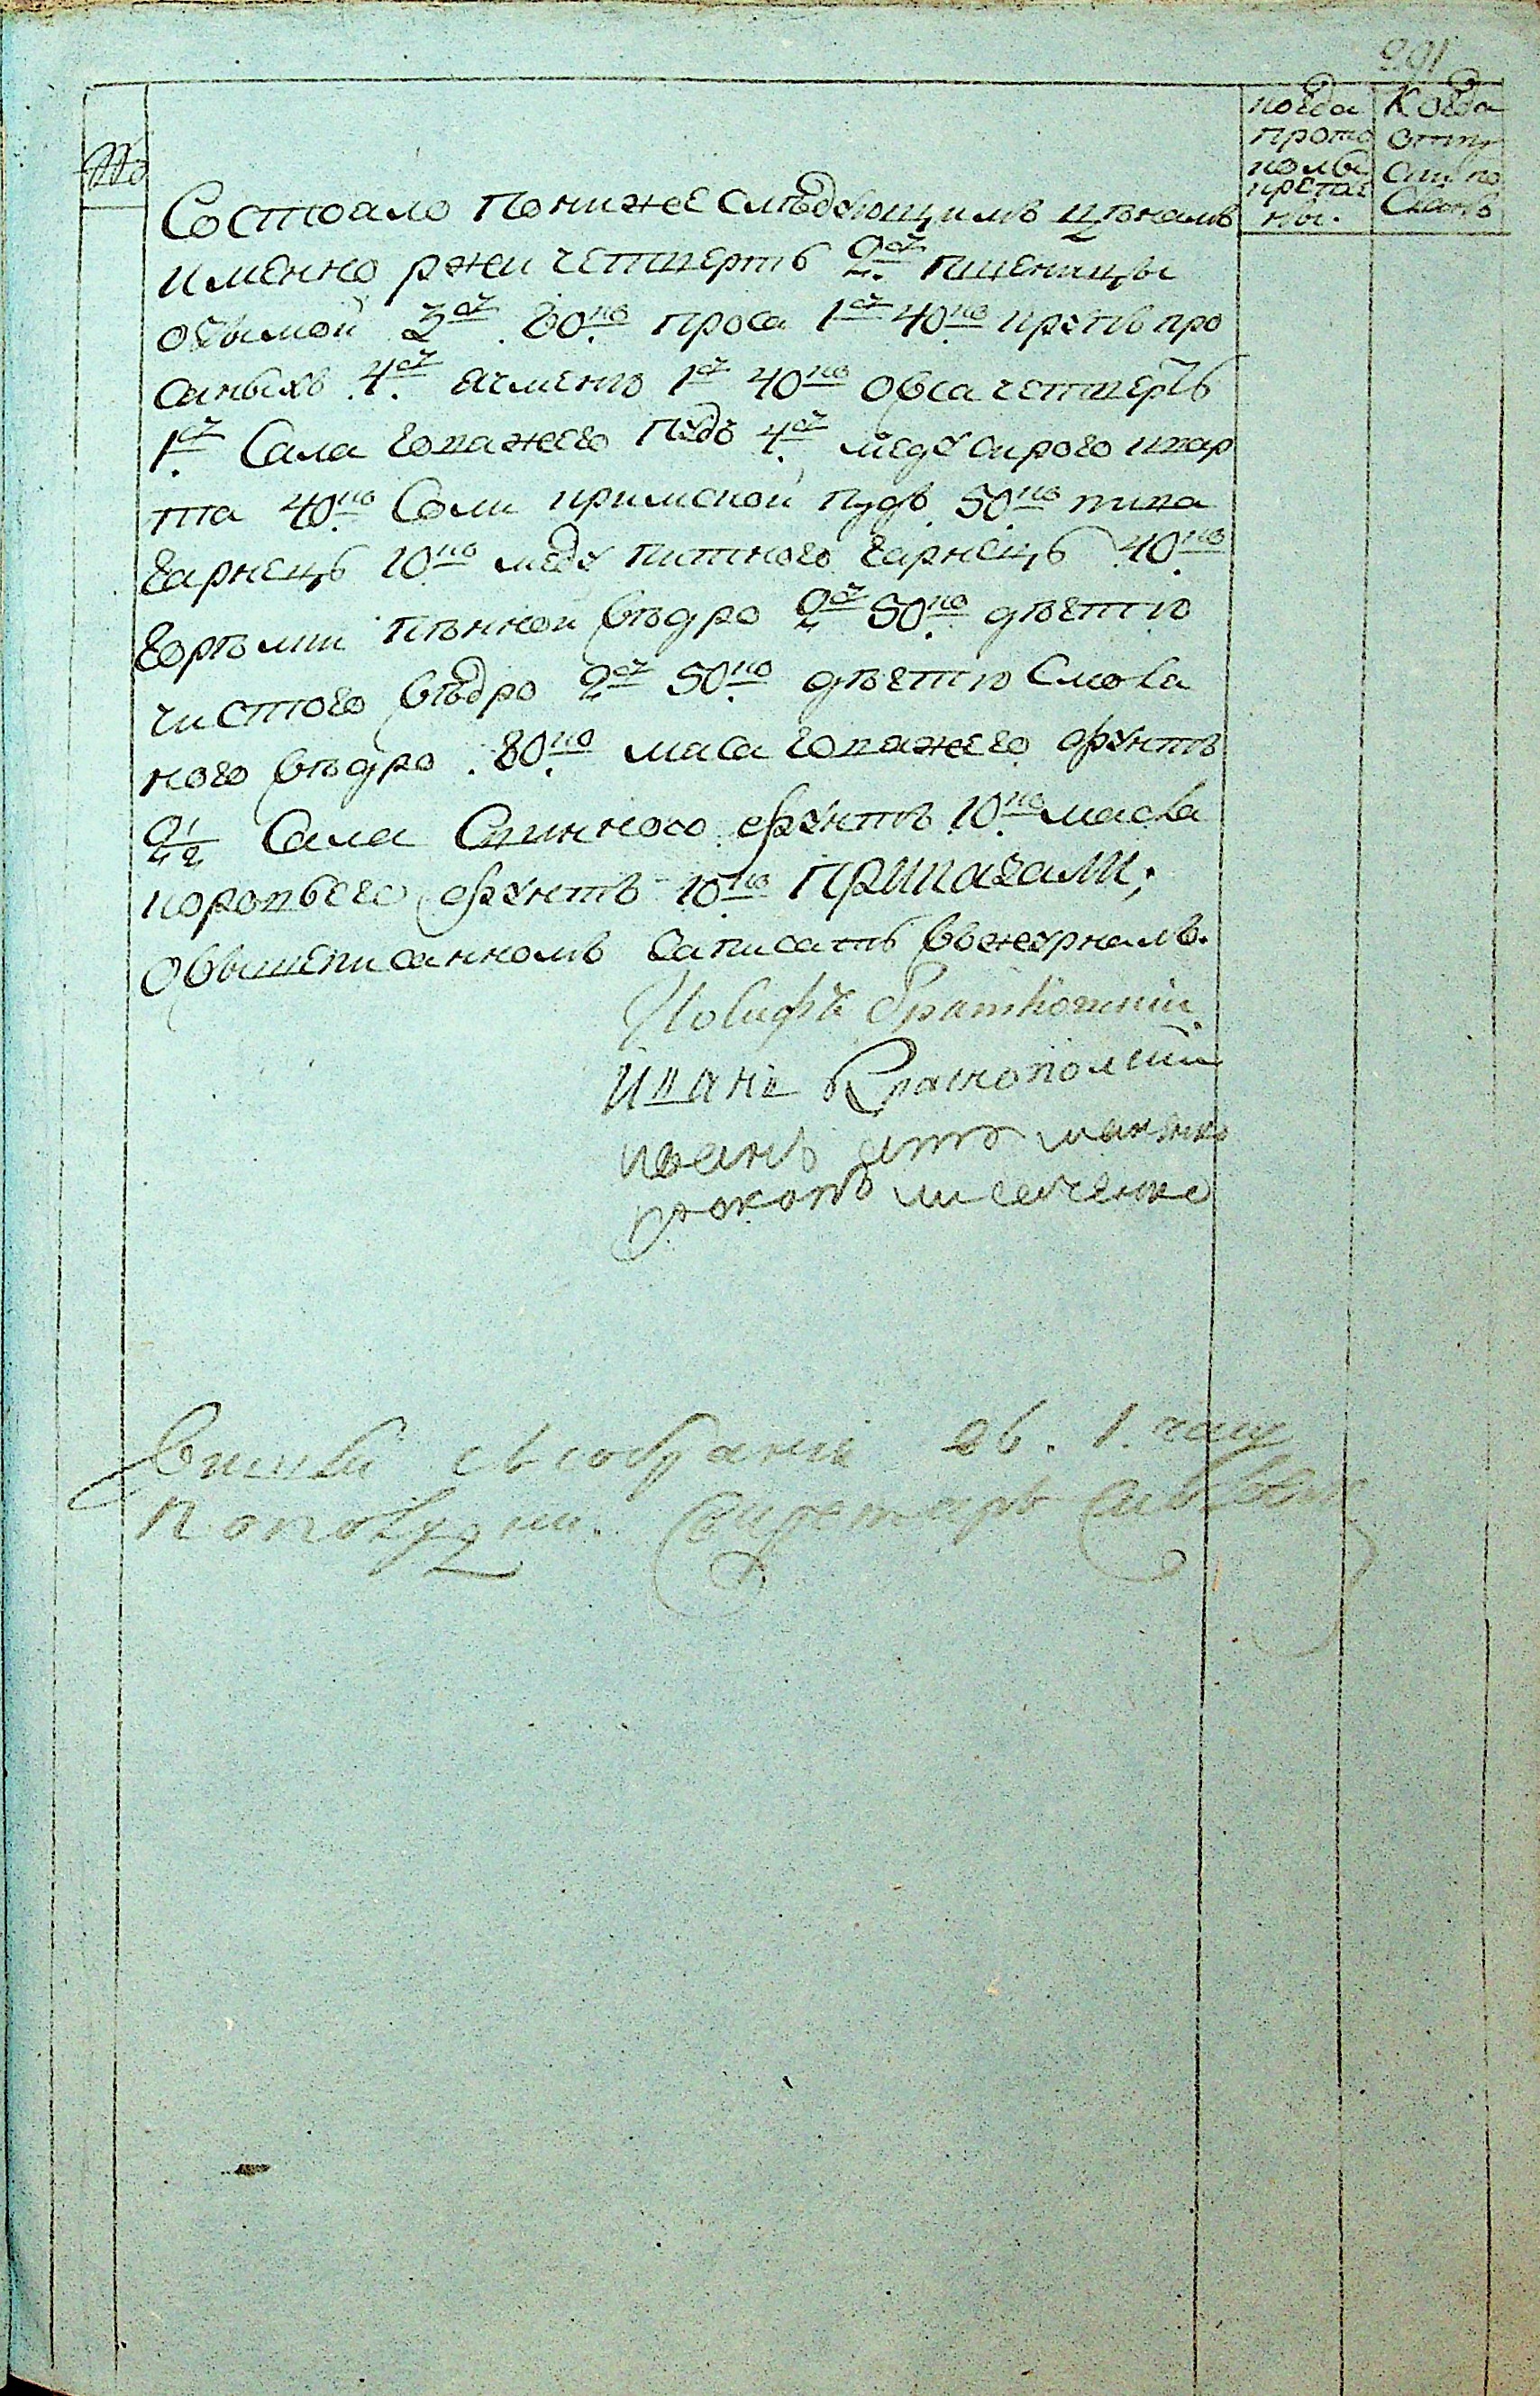 291
№
когда прото колы крепле ны.
Когда отпу щен по
Состояло пониже следующимъ ценамъ
именно ржи четверть 2 ру пшеницы
озимой 3 ру 80 ко проса 1 ру 40 ко крупъ про
саныхъ 4 ру ячменю 1 ру 40 ко овса четверть
1 ру Сала говяжего пудъ 4 ру меду сырого квар
та 40 ко Соли кримской пудъ 50 ко пива
гарнецъ 10 ко меду питного гарнецъ 40 ко
горѣлки пѣнной вѣдро 2 ру 50 ко дѣгтю
чистого вѣдро 2 ру 50 ко дѣгтю Смола
ного вѣдро 80 ко мяса говяжего фунтъ
2 1/2 Сала Свинного фунтъ 10 ко масла
коровьего фунтъ 10 ко Приказали;
Овышеписанномъ записать вжурналъ.
Иосифъ
Иванъ Краснопольскій
иванъ
Вишли съ собранія въ 1. часу
пополудни. Секретарь